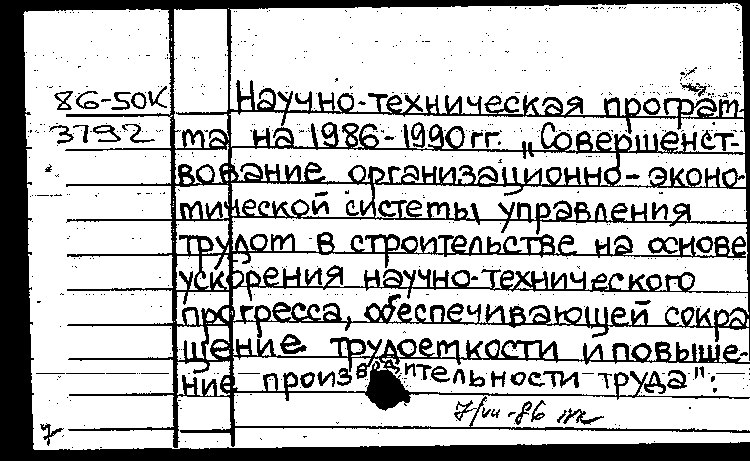 86-50К Научно-техническая програм-
3792 ма на 1986-1990гг. „Совершенст-
вование организационно-эконо-
мической системы управления
трудом в строительстве на основе
ускорения научно-технического
прогресса, обеспечивающей сокра
щение трудоемкости и повыше-
ние производительности труда":
7/VII-86